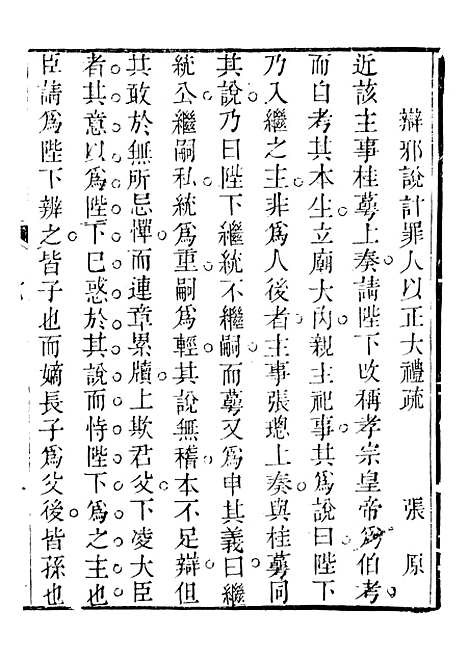 辯邪說討罪人以正大禮疏　張原
近該主事桂萼上奏請陛下改稱孝宗皇帝為伯考
而自考其本生立廟大內親主祀事其為說曰陛下
乃入繼之主非為人後者主事張璁上奏與桂萼同
其說乃曰陛下繼統不繼嗣而萼又為申其義曰繼
統公繼嗣私統為重嗣為輕其說無稽本不足辯但
其敢於無所忌憚而連章累牘上欺君父下凌大臣
者其意以為陛下已惑於其說而恃陛下為之主也
臣請為陛下辨之皆子也而嫡長子為父後皆孫也